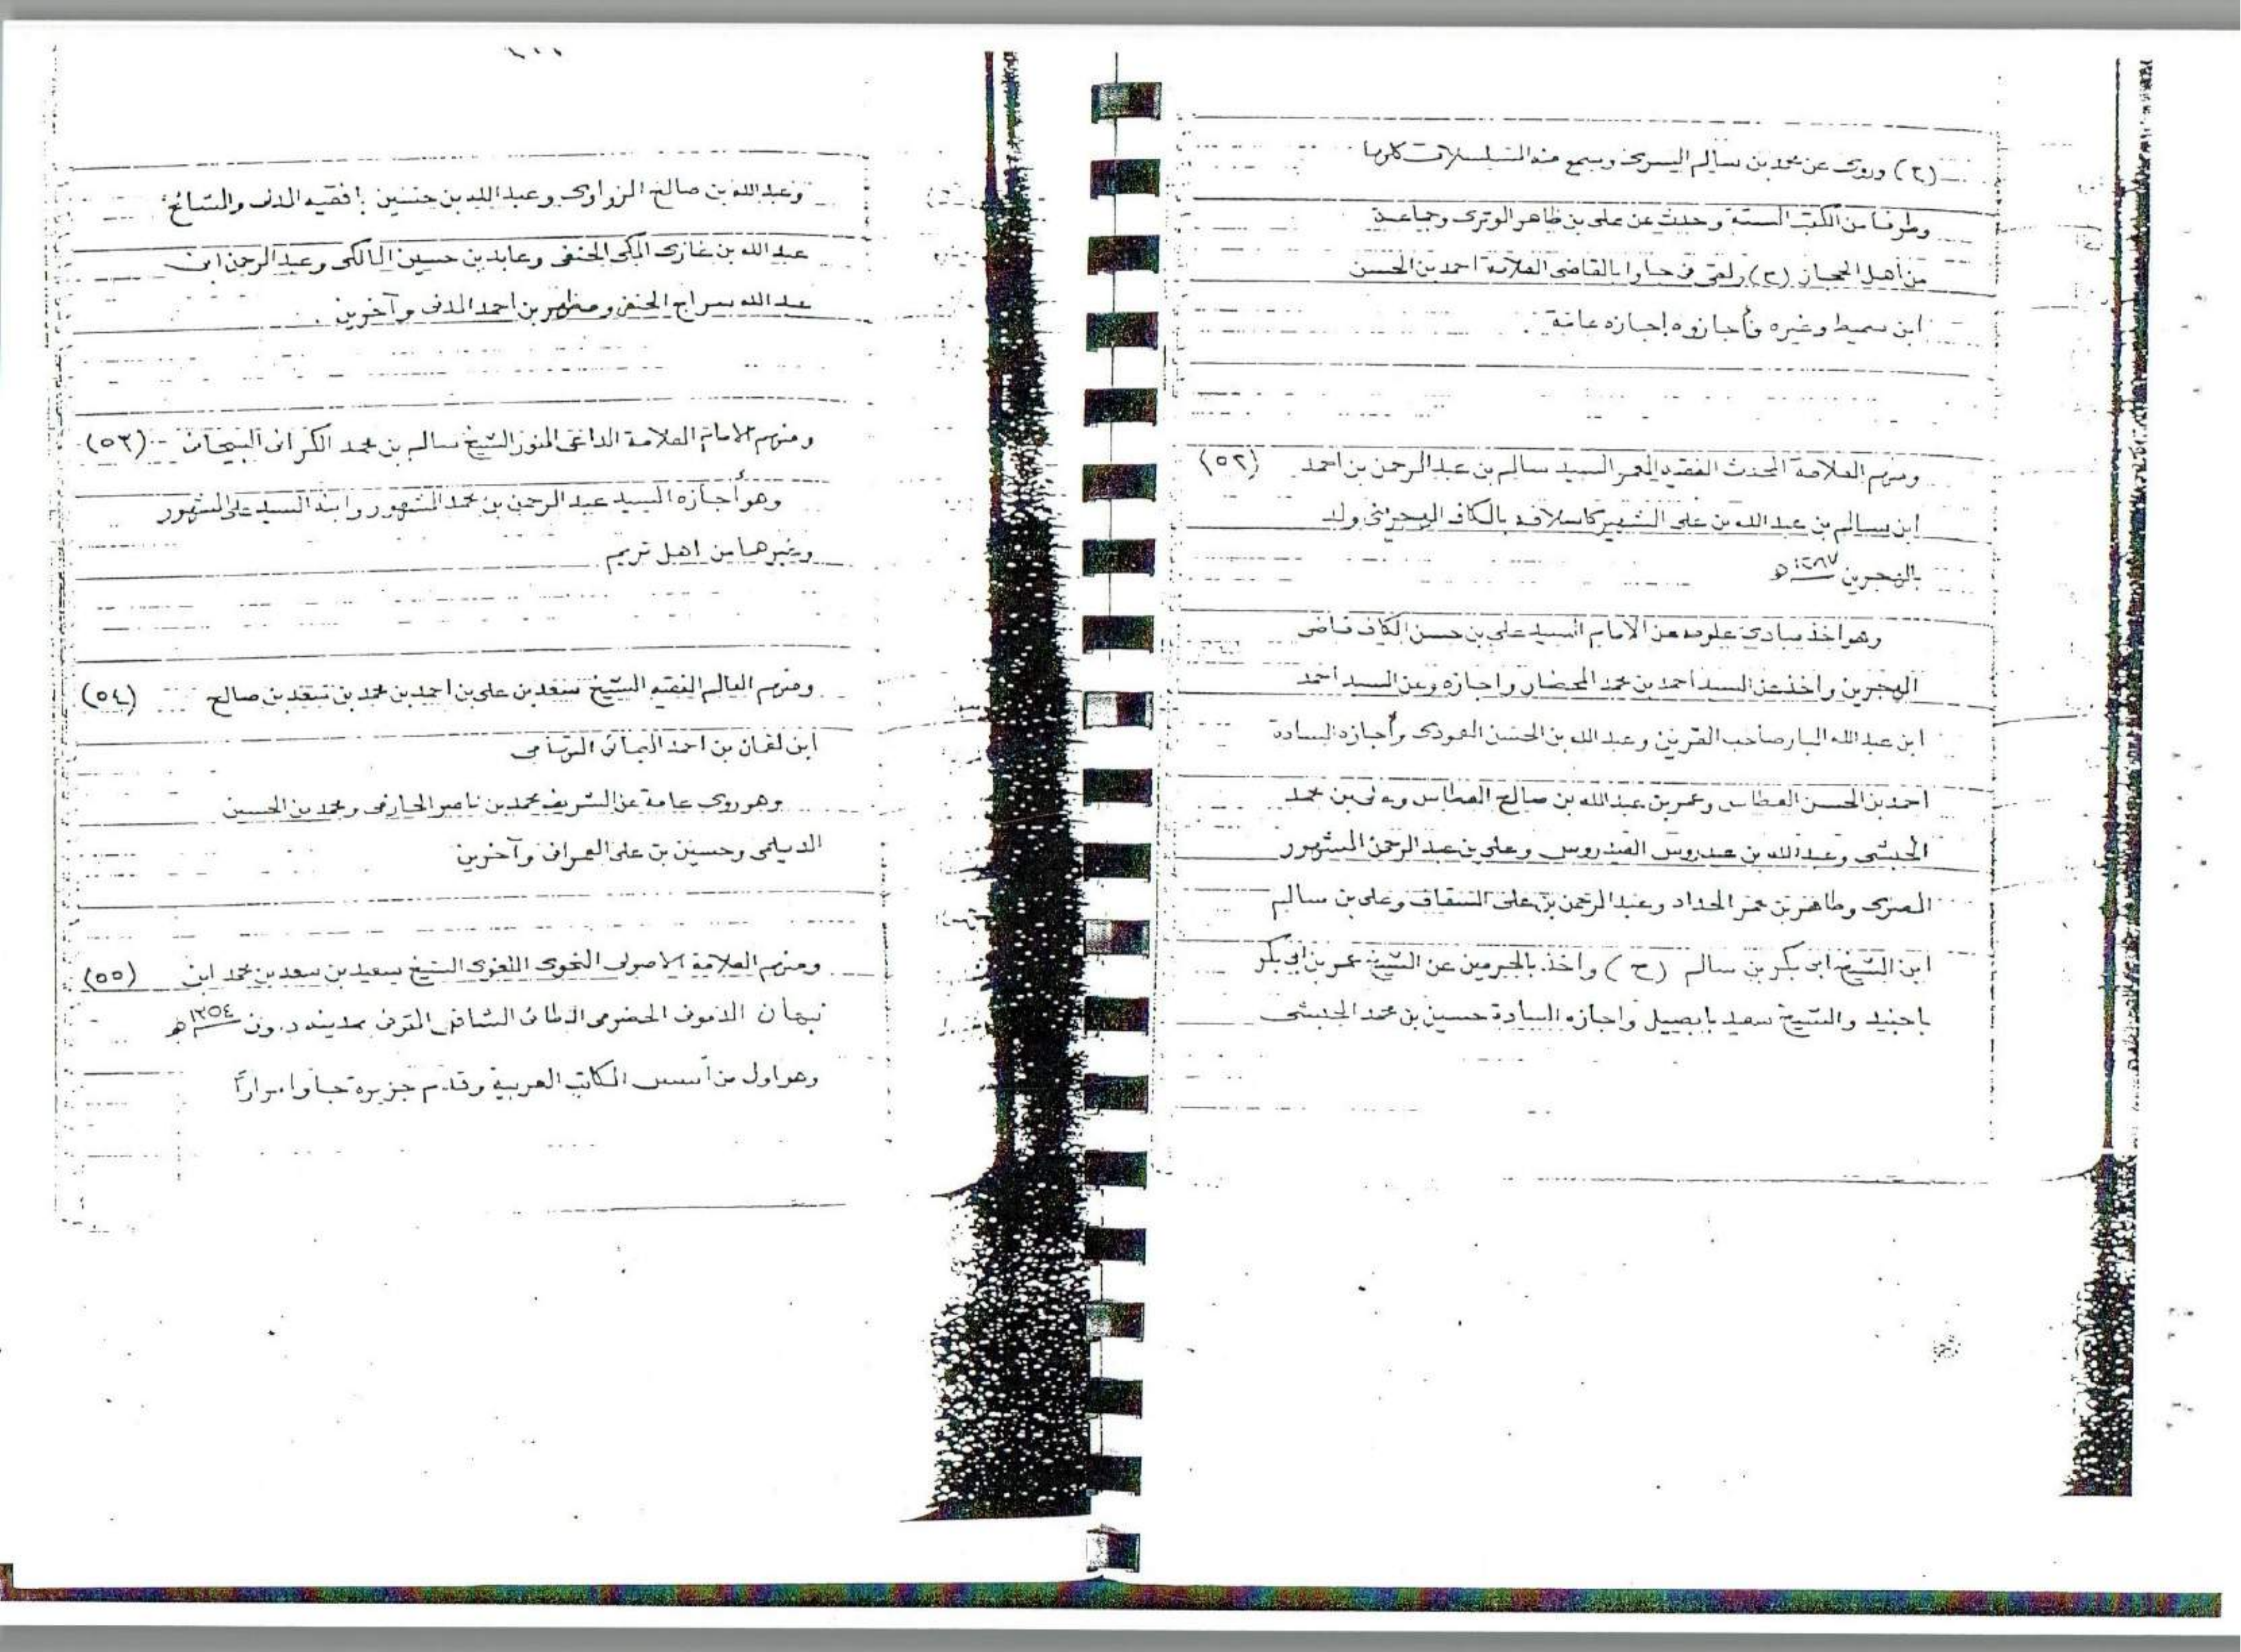 (ح) وروى عن محمد بن سالم السري وسمع منه المسلسلات كلها
وطرفا من الكتب الستة وحدث عن علي بن ظاهر الوتري وجماعة
من أهل الحجاز (ح) ولقي في جاوا بالقاضي العلامة احمد بن الحسن
ابن سميط وغيره فأجازوه إجازه عامة .
ومنهم العلامة المحدث الفقيه المعمر السيد سالم بن عبد الرحمن بن احمد (٥٢)
ابن سالم بن عبد الله بن علي الشهير كاسلافه بالكاف الهجريني ولد
بالهجرين ١٢٨٧ ه
وهو اخذ مبادئ علومه عن الامام السيد علي بن حسن الكاف قاضى
الهجرين واخذ عن السيد أحمد بن محمد المحضار واجازه وعن السيد أحمد
ابن عبد الله البار صاحب القرين وعبد الله بن الحسن وأجازه السادة
احمد بن الحسن العطاس وعمر بن عبد الله بن صالح العطاس وعلى بن محمد
الحبشى وعبد الله بن عيدروس العيدروس وعلي بن عبد الرحمن المشهور
المصرى وطاهر بن عمر الحداد وعبد الرحمن بن على السقاف وعلى بن سالم
ابن الشيخ ابى بكر بن سالم (ح) واخذ بالحرمين عن الشيخ عمر بن ابي بكر
باجنيد والشيخ سعيد بابصيل واجازه السادة حسين بن محمد الحبشى
١٠٠
وعبد الله بن صالح الزواوى وعبد الله بن حسين بافقيه المدنى والشائح
عبد الله بن غازى المكى الحنفى وعابد بن حسين المالكى وعبد الرحمن ابن
عبد الله سراج الحنفى ومظهر بن احمد المدنى وآخرين .
ومنهم الامام العلامة الداعى المنور الشيخ سالم بن محمد الكرانى البيحانى (٥٣)
وهو أجازه السيد عبد الرحمن بن محمد المشهور وابنه السيد على المشهور
وغيرهما من اهل تريم
ومنهم العالم الفقيه الشيخ سعد بن على بن احمد بن محمد بن سعد بن صالح (٥٤)
ابن لقمان بن احمد اليمانى
وهو روى عامة عن الشريف محمد بن ناصر الحازمى ومحمد بن الحسين
الديلمى وحسين بن على العمرانى وآخرين
ومنهم العلامة الاصولى النحوى اللغوى الشيخ سعيد بن سعد بن محمد ابن (٥٥)
نبهان الدمونى الحضرمى الطائى الشافعى المتوفى بمدينة دمون ١٣٥٤ ه
وهو اول من أسس المكاتب العربية وقدم جزيرة جاوا مرارًا